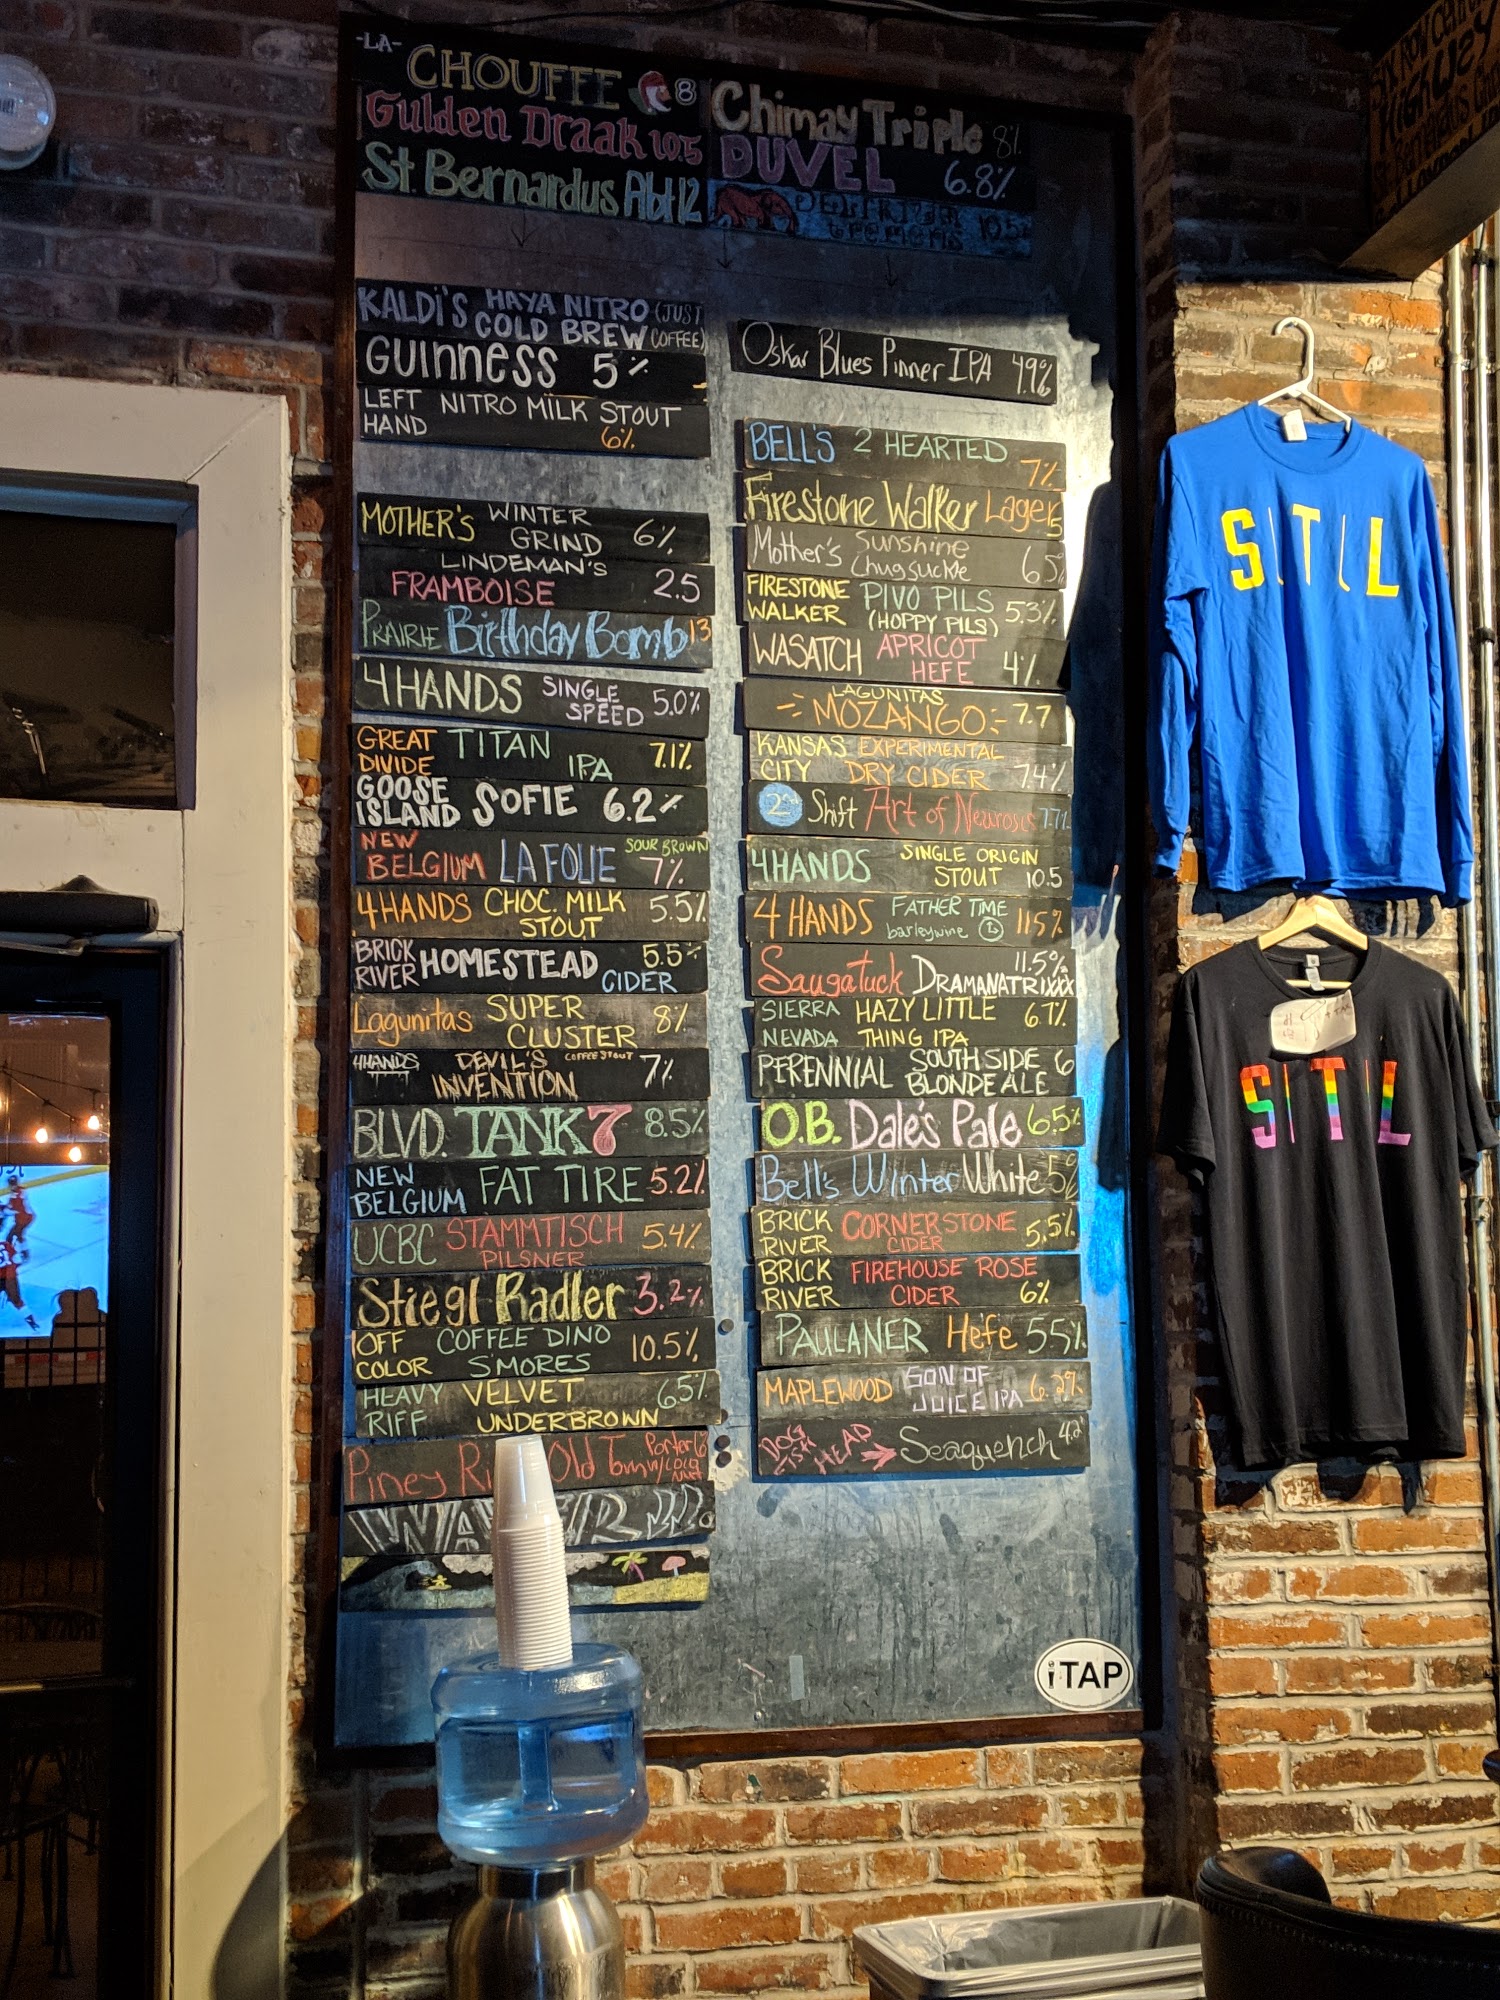 -LA-
CHOUFFE 8
Gulden Draak 10.5
St. Bernardus Abt 12
Chimay Triple 8%
DUVEL 6.8%
DELIRIUM
tremens 10.5
KALDI'S HAYA NITRO (JUST
COLD BREW COFFEE)
GUINNESS 5%
LEFT NITRO MILK STOUT
HAND 6%
MOTHER'S WINTER
GRIND 6%
LINDEMAN'S
FRAMBOISE 2.5
PRAIRIE Birthday Bomb 13
4HANDS SINGLE
SPEED 5.0%
GREAT TITAN
DIVIDE IPA 7.1%
GOOSE
ISLAND SOFIE 6.2%
NEW SOUR BROWN
BELGIUM LA FOLIE 7%
4HANDS CHOC. MILK
STOUT 5.5%
BRICK
RIVER HOMESTEAD 5.5%
CIDER
Lagunitas SUPER
CLUSTER 8%
4HANDS DEVIL'S COFFEE STOUT
INVENTION 7%
BLVD. TANK 7 8.5%
NEW
BELGIUM FAT TIRE 5.2%
UCBC STAMMTISCH
PILSNER 5.4%
Stiegl Radler 3.2%
OFF COFFEE DINO
COLOR S'MORES 10.5%
HEAVY VELVET 6.5%
RIFF UNDERBROWN
Piney Old Porter
WATER
Oskar Blues Pinner IPA 4.9%
BELL'S 2 HEARTED
7%
Firestone Walker Lager 5
Mother's Sunshine
Chugsuckle 6.5%
FIRESTONE PIVO PILS
WALKER (HOPPY PILS) 5.3%
WASATCH APRICOT
HEFE 4%
LAGUNITAS
MOZANGO 7.7
KANSAS EXPERIMENTAL
CITY DRY CIDER 7.4%
2nd Shift Art of Neurosis 7.7%
4HANDS SINGLE ORIGIN
STOUT 10.5
4 HANDS FATHER TIME
barleywine 11.5%
Saugatuck 11.5%
DRAMANATRIXXX
SIERRA HAZY LITTLE
NEVADA THING IPA 6.7%
PERENNIAL SOUTHSIDE
BLONDE ALE 6
O.B. Dale's Pale 6.5%
Bell's Winter White 5%
BRICK CORNERSTONE
RIVER CIDER 5.5%
BRICK FIREHOUSE ROSE
RIVER CIDER 6%
PAULANER Hefe 5.5%
MAPLEWOOD SON OF
JUICE IPA 6.2%
DOG
FISH
HEAD Seaquench 4.2
iTAP
S|T|L
S|T|L